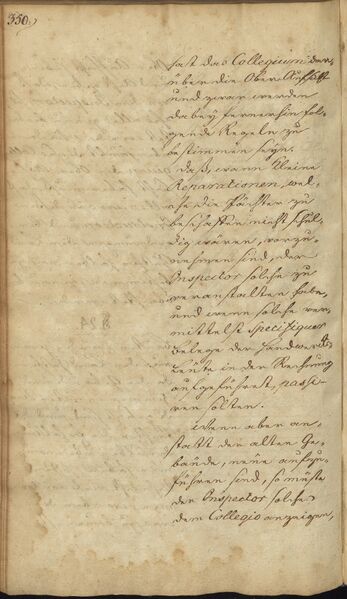 350.
hat das Collegium der-
über die Ober Aufsicht
und zwar werden
dabey fernerhin fol-
gende Regeln zu
bestimmen seyn.
Daß, wann kleine
Reparationen, wel-
che die Pächter zu
beschaffen nicht schul-
dig wären, vorzu-
nehmen sind, der
Inspector solche zu
veranstalten habe,
und wenn solche ver-
mittelst specifiquer
Belege der Handwerks
Leute in der Rechnung
aufgeführet, passi-
ren sollen.
Wenn aber an-
statt der alten Ge-
bäude, neue aufzu-
führen sind, so müste
der Inspector solches
dem Collegio anzeigen,